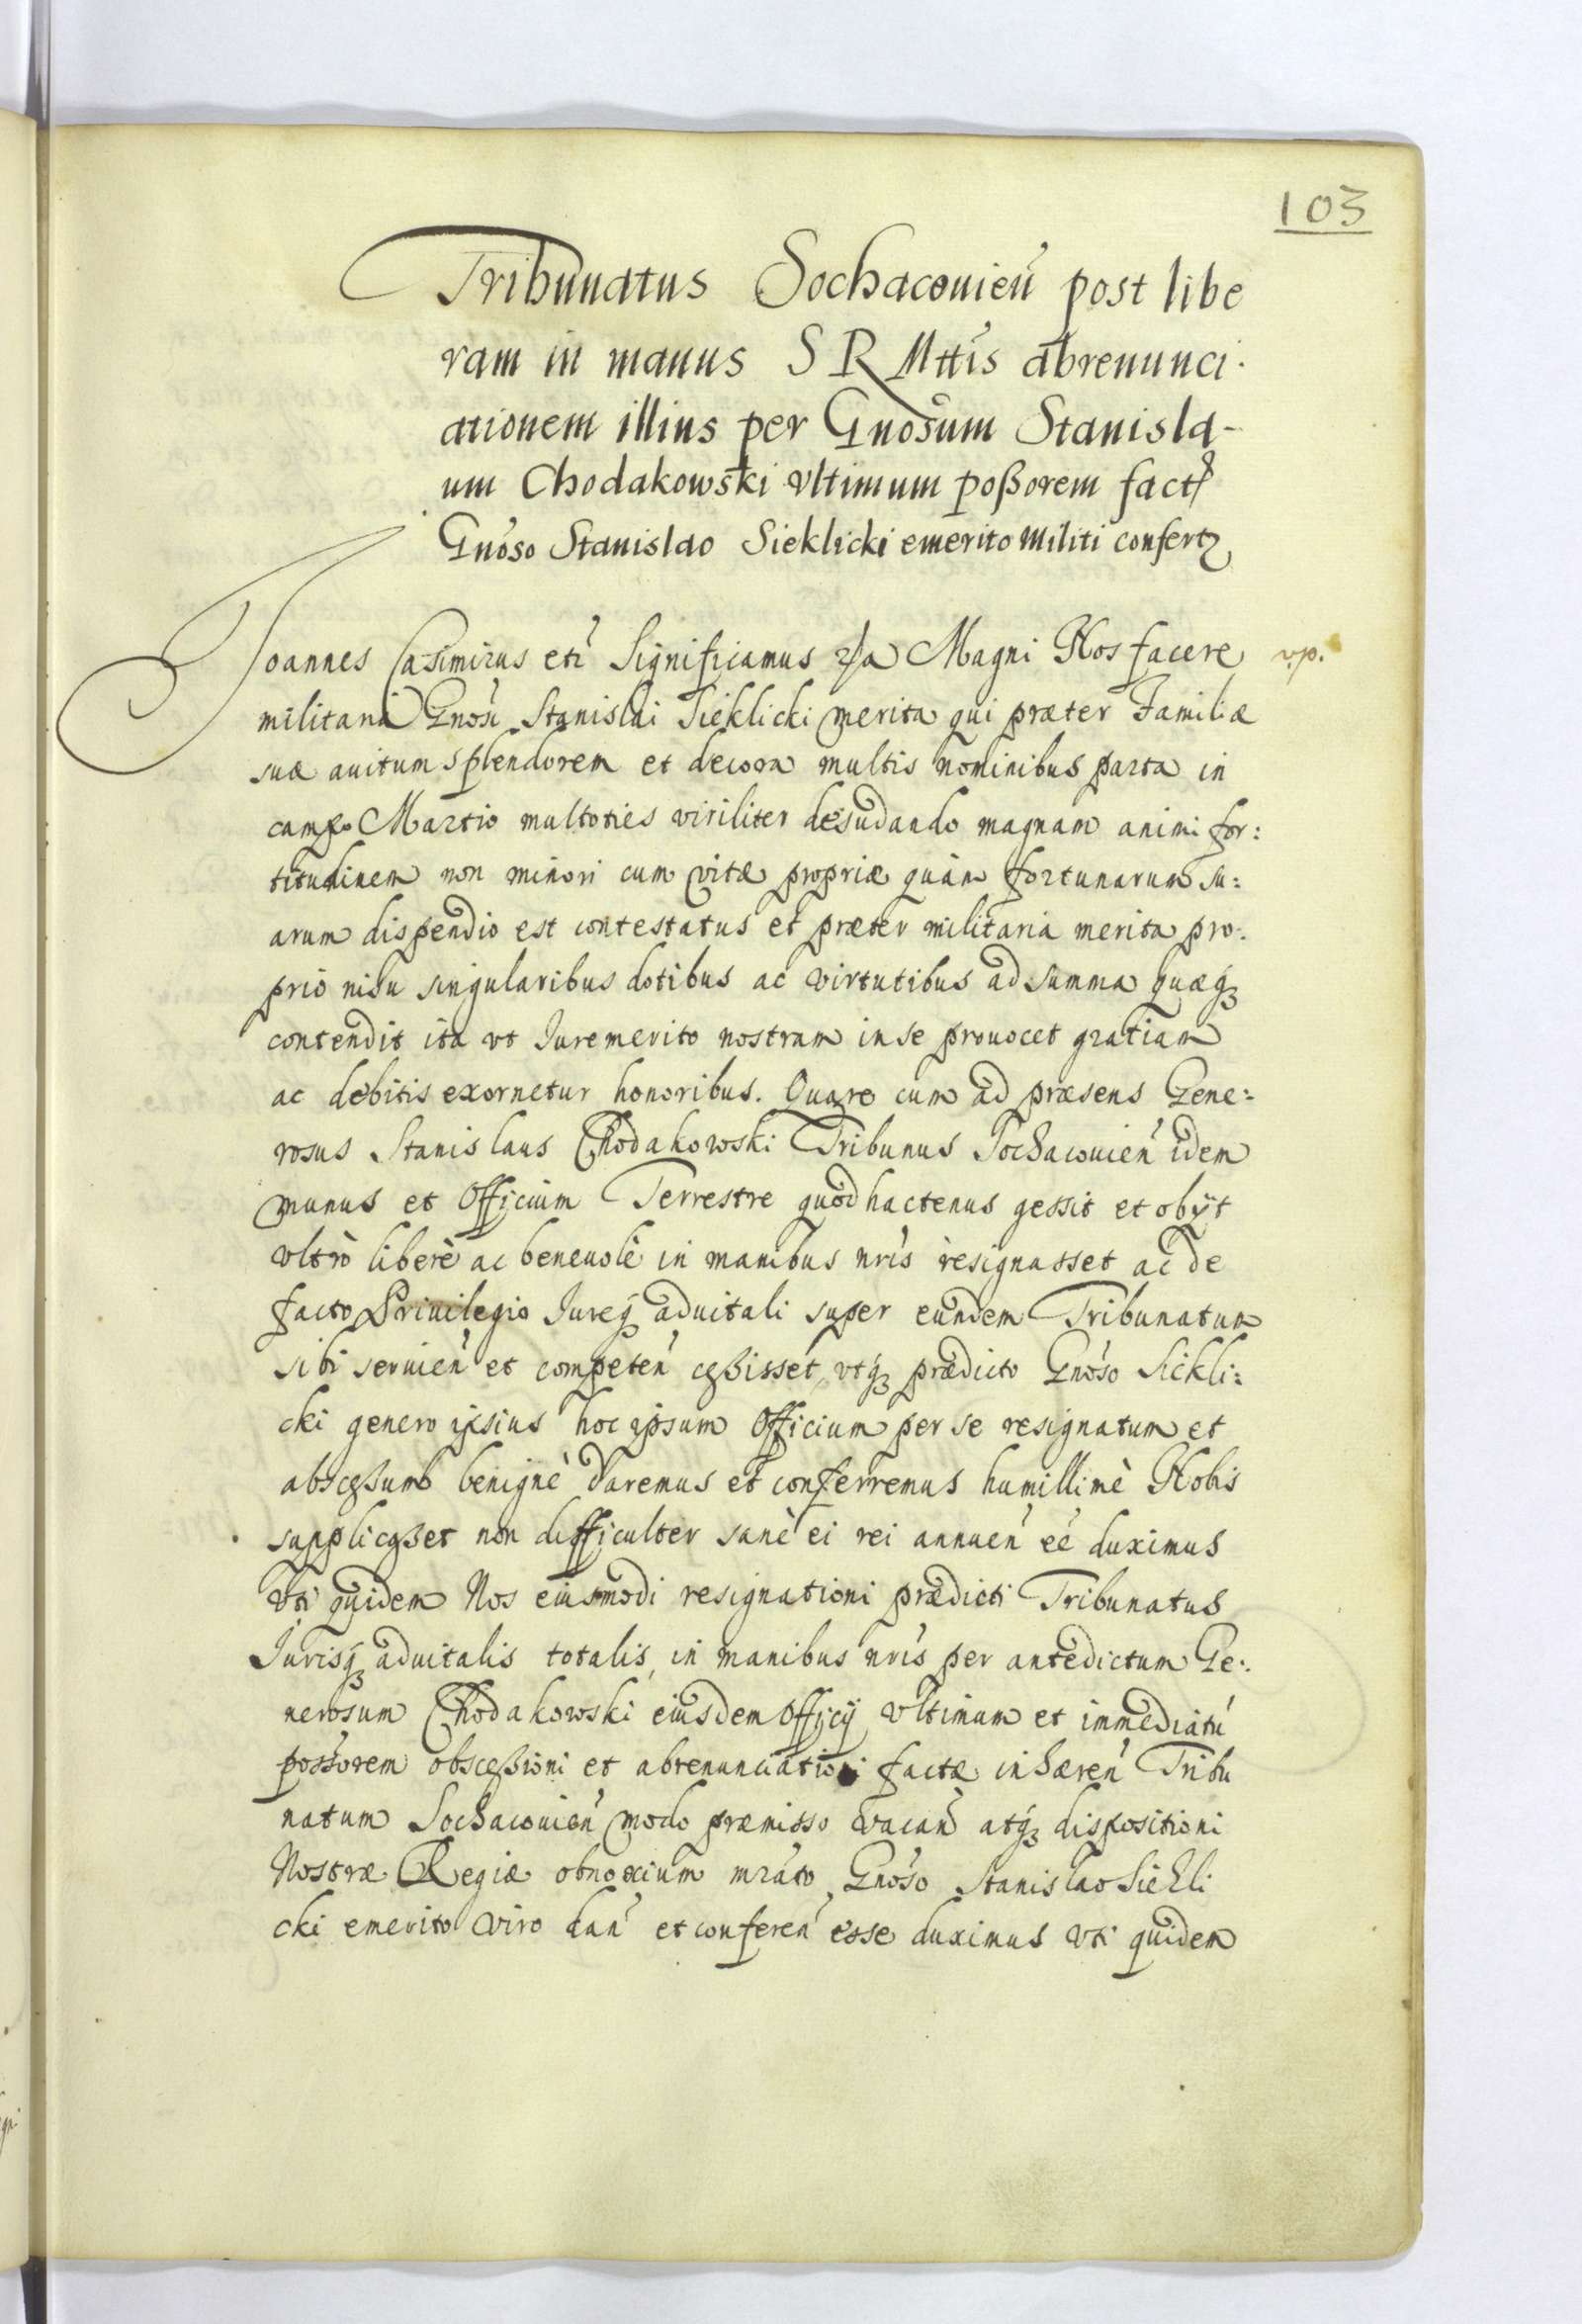 103
Tribunatus Sochacouień post libe
ram in manus S R Mttis abrenunci-
ationem illius per Gnosum Stanisla-
um Chodakowski vltimum poßorem fact
Gnoso Stanislao Sieklicki emerito militi confertꝫ
Joannes Casimirus etc Significamus Magni Nos facere v.p.
militaria Gnosi Stanislai Sieklicki merita qui præter Familiæ
suæ auitum splendorem et decora multis nominibus parta in
campo Martio multoties viriliter desudando magnam animi for:
titudinem non minori cum vitæ propriæ quàm fortunarum su:
arum dispendio est contestatus et præter militaria merita pro:
prio nisu singularibus dotibus ac virtutibus ad summa quæqꝫ
contendit ita vt Jure merito nostram in se prouocet gratiam
ac debitis exornetur honoribus. Quare cum ad præsens Gene:
rosus Stanislaus Chodakowski Tribunus Sochacouień idem
munus et Officium Terrestre quod hactenus gessit et obijt
vltrò liberè ac beneuolè in manibus nris resignasset ac de
facto Priuilegio Jureqꝫ aduitali super eundem Tribunatum
sibi seruień et competeń ceßisset, vtqꝫ prædicto Gnoso Siekli:
cki genero ipsius hoc ipsum Officium per se resignatum et
absceßum benignè daremus et conferremus humillimè Nobis
supplicaßet non difficulter sanè ei rei annueń eé duximus
Vti quidem Nos eiusmodi resignationi prædicti Tribunatus
Jurisqꝫ aduitalis totalis, in manibus nris per antedictum Ge:
nerosum Chodakowski eiusdem Officij vltimum et immediatú
possorem obsceßioni et abrenunciationi factæ inhæreń Tribu
natum Sochacouień modo præmisso vacań atqꝫ dispositioni
Nostræ Regiæ obnoxium mrato Gnoso Stanislao Siekli
cki emerito viro dań et confereń esse duximus vti quidem